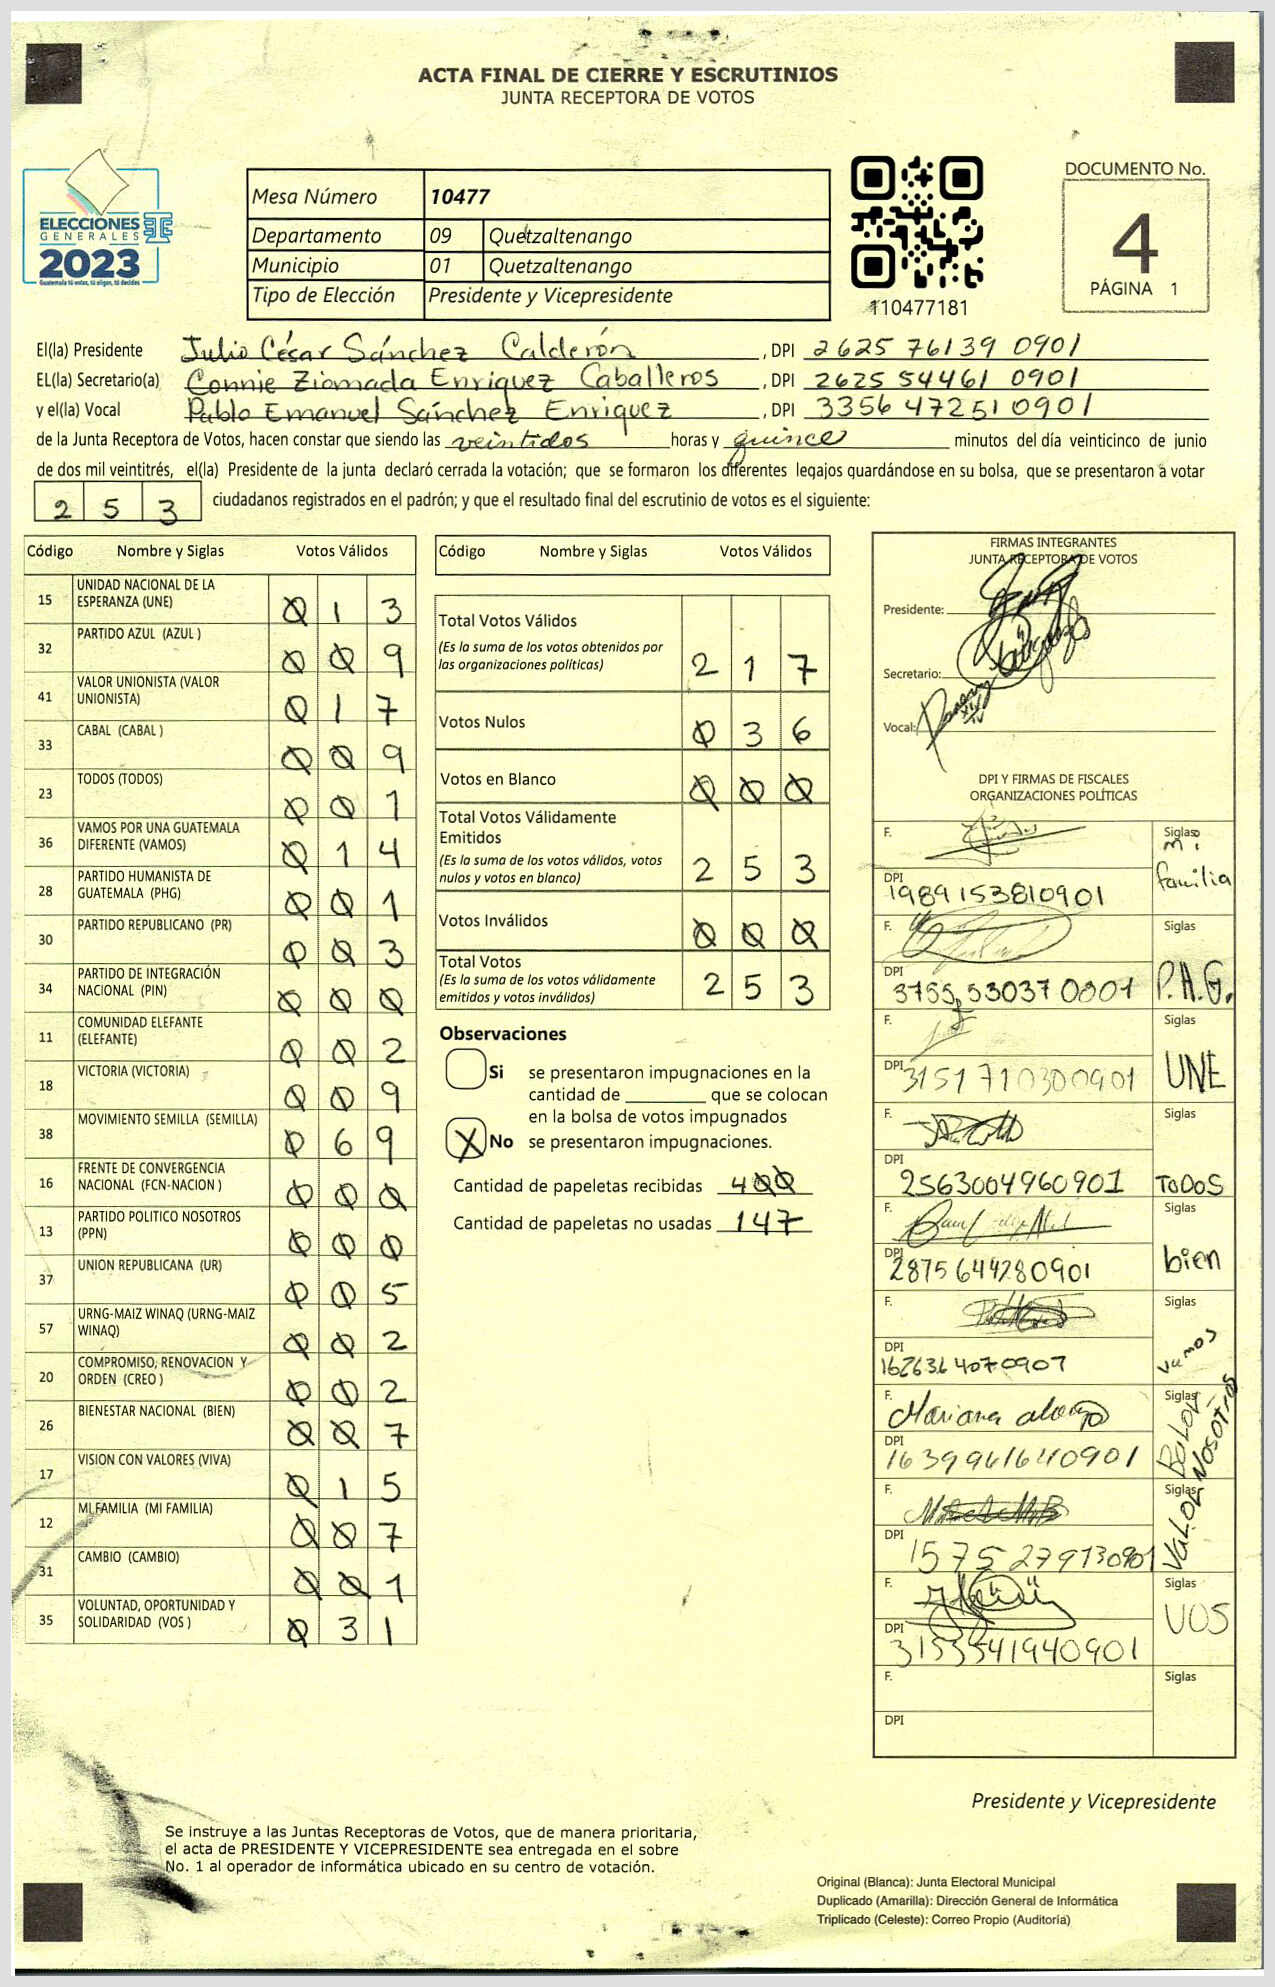 ACTA FINAL DE CIERRE Y ESCRUTINIOS
JUNTA RECEPTORA DE VOTOS
ELECCIONES
GENERALES
2023
Guatemala tú votas, tú eliges, tú decides
Mesa Número 10477
Departamento 09 Quetzaltenango
Municipio 01 Quetzaltenango
Tipo de Elección Presidente y Vicepresidente
110477181
DOCUMENTO No.
4
PÁGINA 1
El(la) Presidente Julio César Sánchez Calderón, DPI 2625 76139 0901
EL(la) Secretario(a) Connie Ziomada Enriquez Caballeros, DPI 2625 54461 0901
y el(la) Vocal Pablo Emanuel Sánchez Enriquez, DPI 3356 47251 0901
de la Junta Receptora de Votos, hacen constar que siendo las veintidos horas y quince minutos del día veinticinco de junio
de dos mil veintitrés, el(la) Presidente de la junta declaró cerrada la votación; que se formaron los diferentes legajos quardándose en su bolsa, que se presentaron a votar
253 ciudadanos registrados en el padrón; y que el resultado final del escrutinio de votos es el siguiente:
Código Nombre y Siglas Votos Válidos
15 UNIDAD NACIONAL DE LA ESPERANZA (UNE) 0 1 3
32 PARTIDO AZUL (AZUL ) 0 0 9
41 VALOR UNIONISTA (VALOR UNIONISTA) 0 1 7
33 CABAL (CABAL ) 0 0 9
23 TODOS (TODOS) 0 0 1
36 VAMOS POR UNA GUATEMALA DIFERENTE (VAMOS) 0 1 4
28 PARTIDO HUMANISTA DE GUATEMALA (PHG) 0 0 1
30 PARTIDO REPUBLICANO (PR) 0 0 3
34 PARTIDO DE INTEGRACIÓN NACIONAL (PIN) 0 0 0
11 COMUNIDAD ELEFANTE (ELEFANTE) 0 0 2
18 VICTORIA (VICTORIA) 0 0 9
38 MOVIMIENTO SEMILLA (SEMILLA) 0 6 9
16 FRENTE DE CONVERGENCIA NACIONAL (FCN-NACION ) 0 0 0
13 PARTIDO POLITICO NOSOTROS (PPN) 0 0 0
37 UNION REPUBLICANA (UR) 0 0 5
57 URNG-MAIZ WINAQ (URNG-MAIZ WINAQ) 0 0 2
20 COMPROMISO, RENOVACION Y ORDEN (CREO ) 0 0 2
26 BIENESTAR NACIONAL (BIEN) 0 0 7
17 VISION CON VALORES (VIVA) 0 1 5
12 MI FAMILIA (MI FAMILIA) 0 0 7
31 CAMBIO (CAMBIO) 0 0 1
35 VOLUNTAD, OPORTUNIDAD Y SOLIDARIDAD (VOS ) 0 3 1
Código Nombre y Siglas Votos Válidos
Total Votos Válidos 2 1 7
(Es la suma de los votos obtenidos por
las organizaciones políticas)
Votos Nulos 0 3 6
Votos en Blanco 0 0 0
Total Votos Válidamente
Emitidos 2 5 3
(Es la suma de los votos válidos, votos
nulos y votos en blanco)
Votos Inválidos 0 0 0
Total Votos 2 5 3
(Es la suma de los votos válidamente
emitidos y votos inválidos)
Observaciones
Si se presentaron impugnaciones en la
cantidad de ________ que se colocan
en la bolsa de votos impugnados
X No se presentaron impugnaciones.
Cantidad de papeletas recibidas 400
Cantidad de papeletas no usadas 147
FIRMAS INTEGRANTES
JUNTA RECEPTORA DE VOTOS
Presidente:
Secretario:
Vocal:
DPI Y FIRMAS DE FISCALES
ORGANIZACIONES POLÍTICAS
F. Siglas mi familia
DPI 1989153810901
F. Siglas P.H.G.
DPI 3755 53037 0801
F. Siglas UNE
DPI 3151710300901
F. Siglas TODOS
DPI 2563004960901
F. Siglas bien
DPI 2875644280901
F. Siglas Vamos
DPI 1626364070907
F. Mariana Siglas NOSOTROS
DPI 1639961640901
F. Siglas VALOR
DPI 1575279130901
F. Siglas VOS
DPI
F. Siglas
DPI
Presidente y Vicepresidente
Se instruye a las Juntas Receptoras de Votos, que de manera prioritaria,
el acta de PRESIDENTE Y VICEPRESIDENTE sea entregada en el sobre
No. 1 al operador de informática ubicado en su centro de votación.
Original (Blanca): Junta Electoral Municipal
Duplicado (Amarilla): Dirección General de Informática
Triplicado (Celeste): Correo Propio (Auditoría)